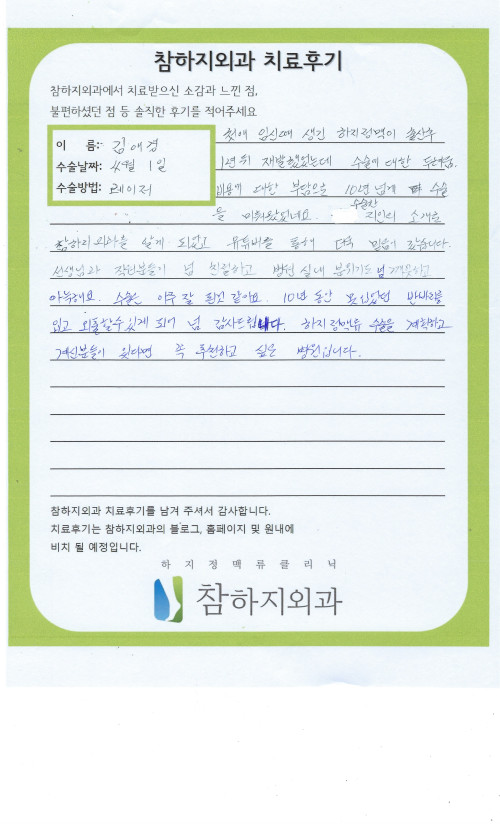 참하지외과 치료후기
참하지외과에서 치료받으신 소감과 느낀 점,
불편하셨던 점 등 솔직한 후기를 적어주세요
이 름: 김애경
수술날짜: 4월 1일
수술방법: 레이저
첫애 임신때 생긴 하지정맥이 출산후
1년뒤 재발했었는데 수술에 대한 두려움,
비용에 대한 부담으로 10년 넘게 수술
을 미뤄왔었네요. 수술한 지인의 소개로
참하지외과를 알게 되었고 유튜버를 통해 더욱 믿음이 갔습니다.
선생님과 직원분들이 넘 친절하고 병원 실내 분위기도 넘 깨끗하고
아늑해요. 수술은 아주 잘 된것 같아요. 10년 동안 못 입었던 반바지를
입고 외출할수 있게 되어 넘 감사드립니다. 하지정맥류 수술을 계획하고
계신분들이 있다면 꼭 추천하고 싶은 병원입니다.
참하지외과 치료후기를 남겨 주셔서 감사합니다.
치료후기는 참하지외과의 블로그, 홈페이지 및 원내에
비치 될 예정입니다.
하지정맥류클리닉
참하지외과